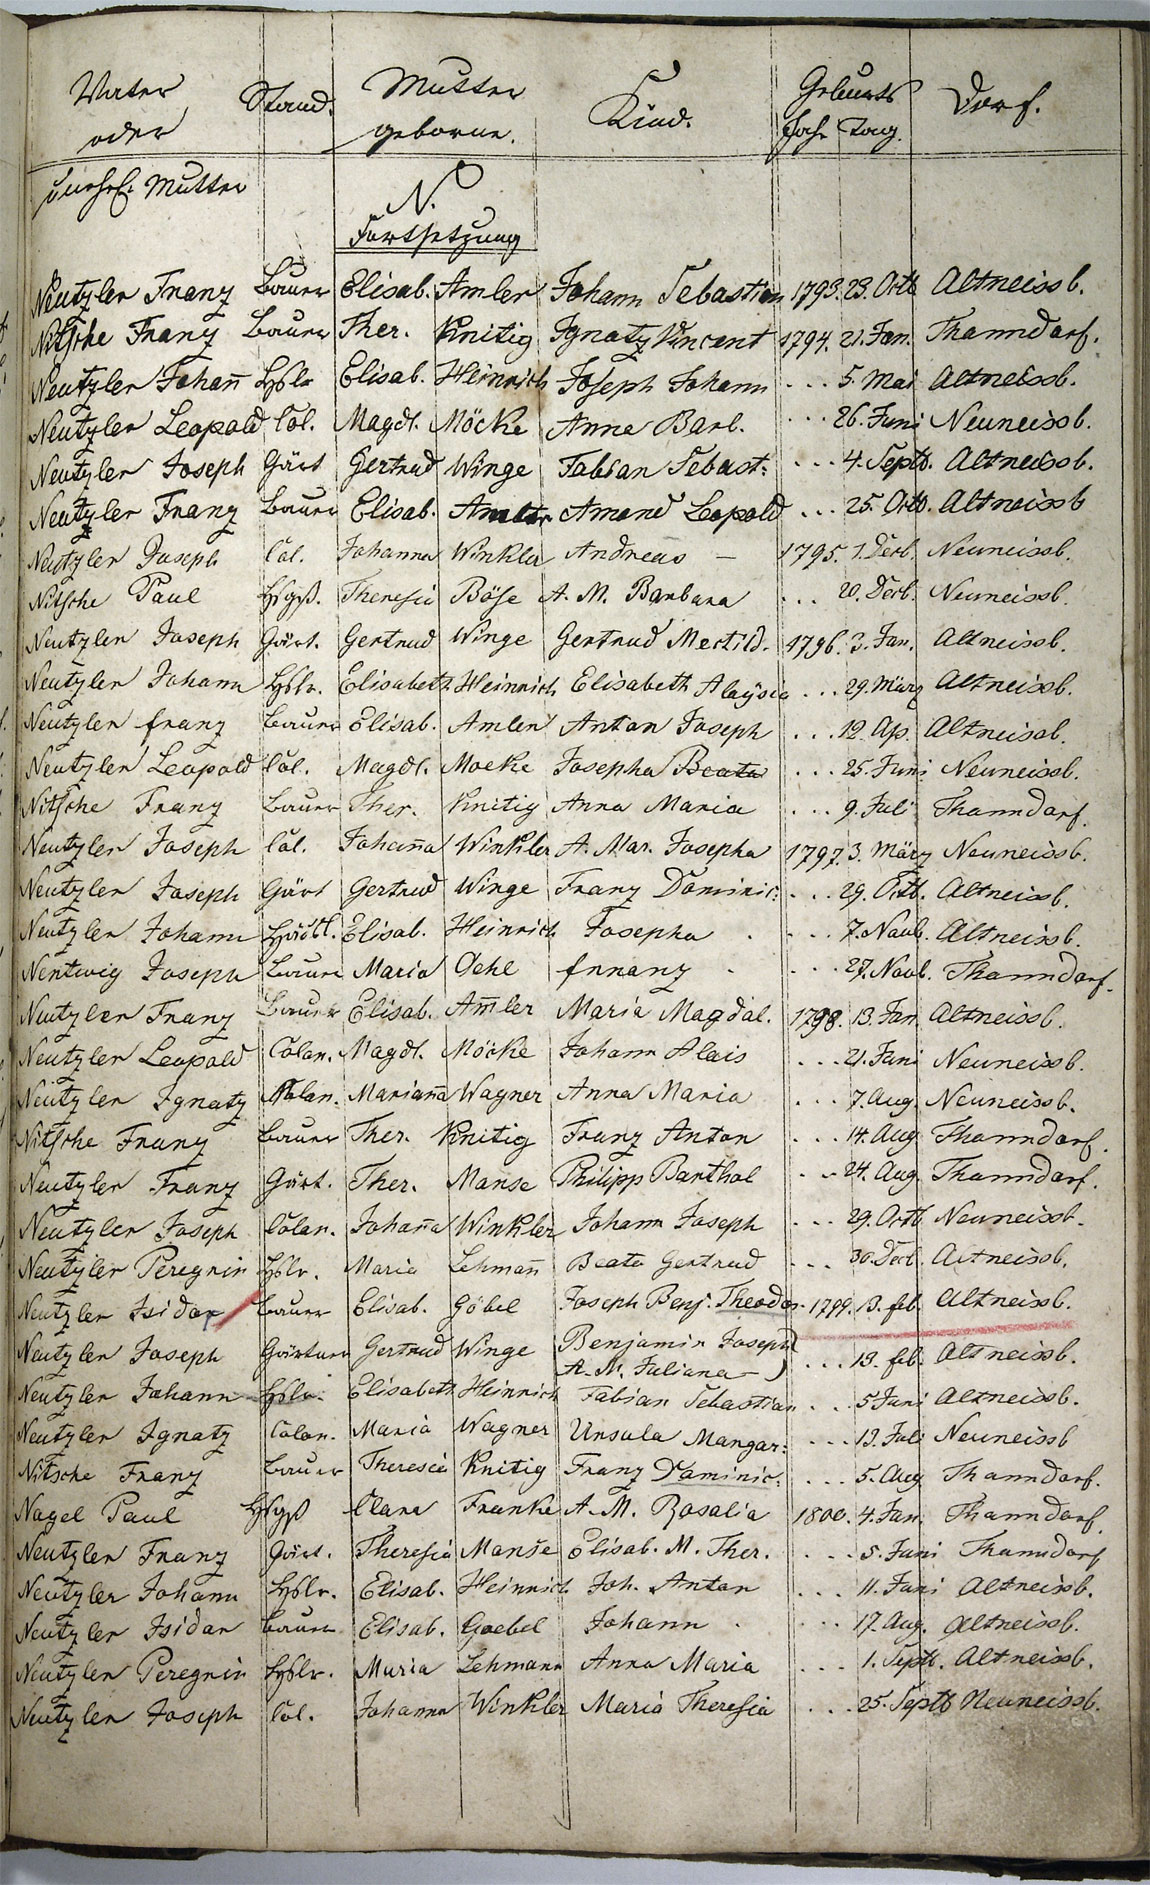 Vater Stand. Mutter Kind. Geburts Dorf.
oder geborne. Jahr Tag.
unehel. Mutter N.
Fortsetzung
Neutzler Franz Bauer Elisab. Amler Johann Sebastian 1793. 23. Octb Altneissb.
Nitsche Franz Bauer Ther. Knitig Ignatz Vincent 1794. 21. Jan. Thanndorf.
Neutzler Johann̅ Hslr Elisab. Heinrich Joseph Johann ... 5. Mai Altneissb.
Neutzler Leopold Col. Magdl. Möcke Anna Barb. ... 26. Juni Neuneissb.
Neutzler Joseph Gärt Gertrud Winge Fabian Sebast: ... 4. Septb. Altneissb.
Neutzler Franz Bauer Elisab. Amler Amand Leopold ... 25. Octb. Altneissb
Neutzler Joseph Col. Johanna Winkler Andreas – 1795. 1. Decb. Neuneissb.
Nitsche Paul Hsgß. Theresia Böse A. M. Barbara ... 20. Decb. Neuneissb.
Neutzler Joseph Gärt. Gertrud Winge Gertrud Mectild. 1796. 3. Jan. Altneissb.
Neutzler Johann Hslr. Elisabeth Heinrich Elisabeth Aloysia ... 29. März Altneissb.
Neutzler franz Bauer Elisab. Amler Anton Joseph ... 12. Ap. Altneissb.
Neutzler Leopold Col. Magdl. Moeke Josepha Beata ... 25. Juni Neuneissb.
Nitsche Franz Bauer Ther. Knitig Anna Maria ... 9. Juli Thanndorf.
Neutzler Joseph Col. Johan̅a Winkler A. Mar. Josepha 1797. 3. März Neuneissb.
Neutzler Joseph Gärt Gertrud Winge Franz Dominic: ... 29. Octb. Altneissb.
Neutzler Johann Elisab. Heinrich Josepha . ... 7. Novb. Altneissb.
Nentwig Joseph Bauer Maria Oehl franz . ... 27. Novb. Thanndorf.
Neutzler Franz Bauer Elisab. Am̅ler Maria Magdal. 1798. 13. Jan Altneissb.
Neutzler Leopold Colon. Magdl. Möcke Johann Alois ... 21. Juni Neuneissb.
Neutzler Ignatz Colon. Marian̅a Wagner Anna Maria ... 7. Aug. Neuneissb.
Nitsche Franz Bauer Ther. Knitig Franz Anton ... 14. Aug Thanndorf.
Neutzler Franz Gärt. Ther. Manse Philipp Barthol ... 24. Aug Thanndorf.
Neutzler Joseph Colon. Johan̅a Winkler Johann Joseph ... 29. Octb Neuneissb.
Neutzler Peregrin Hslr. Maria Lehman̅ Beata Gertrud ... 30. Decb. Altneissb.
Neutzler Isidor Bauer Elisab. Göbel Joseph Benj. Theodor. 1799. 13. feb. Altneissb.
Neutzler Joseph Gärtner Gertrud Winge Benjamin Joseph ... 19. feb. Altneissb.
A. M. Juliana –)
Neutzler Johann Hslr. Elisabeth Heinrich Fabian Sebastian ... 5 Juni Altneissb.
Neutzler Ignatz Colon. Maria Wagner Ursula Mangar: ... 13. Juli Neuneissb
Nitsche Franz Bauer Theresia Knitig Franz Dominic. ... 5. Aug Thanndorf.
Nagel Paul Hsgß Clara Franke A. M. Rosalia 1800. 4. Jan. Thanndorf.
Neutzler Franz Gärt. Theresia Manse Elisab. M. Ther. ... 5. Juni Thanndorf
Neutzler Johann Hslr. Elisab. Heinrich Joh. Anton ... 11. Juni Altneissb.
Neutzler Isidor Bauer Elisab. Goebel Johann . ... 17. Aug. Altneissb.
Neutzler Peregrin Hslr. Maria Lehmann Anna Maria ... 1. Septb. Altneissb.
Neutzler Joseph Col. Johanna Winkler Maria Theresia ... 25. Septb Neuneissb.